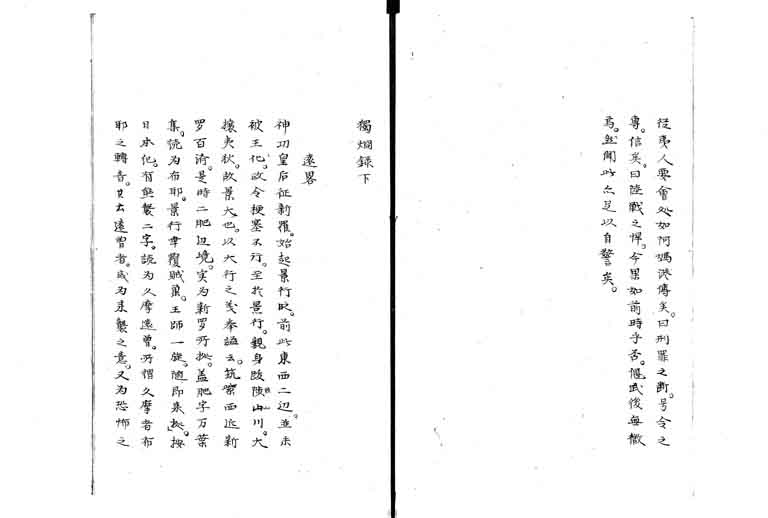 從夷人要會処如阿媽港傳矣。曰刑罪之断。号令之
專。信矣。曰陸戦之悍。今果如前時乎否。偃武後毎徹
焉。然聞此亦足以自警矣。
獨烱録下
遠畧
神功皇后征新羅。始起景行時。前此東西二辺。並未
被王化。故令梗塞不行。至於景行。親身跋陟山川。大
攘夷狄。故景大也。以大行之義奉謚云。筑紫西近新
罗百済。是時二肥辺境。実為新罗所拠。盖肥字万葉
集。読為布耶。景行聿覆賊巣。王師一旋。随即来拠。按
日本化。有熊襲二字。読為久摩遠曽。所謂久摩者布
耶之轉音。其云遠曽者。或為来襲之意。又为恐怖之